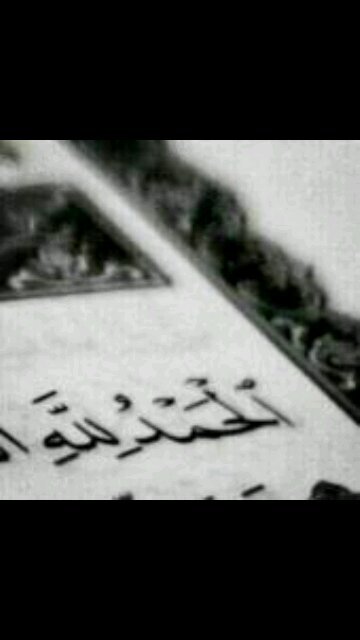 ٱلْحَمْدُ لِلَّهِ